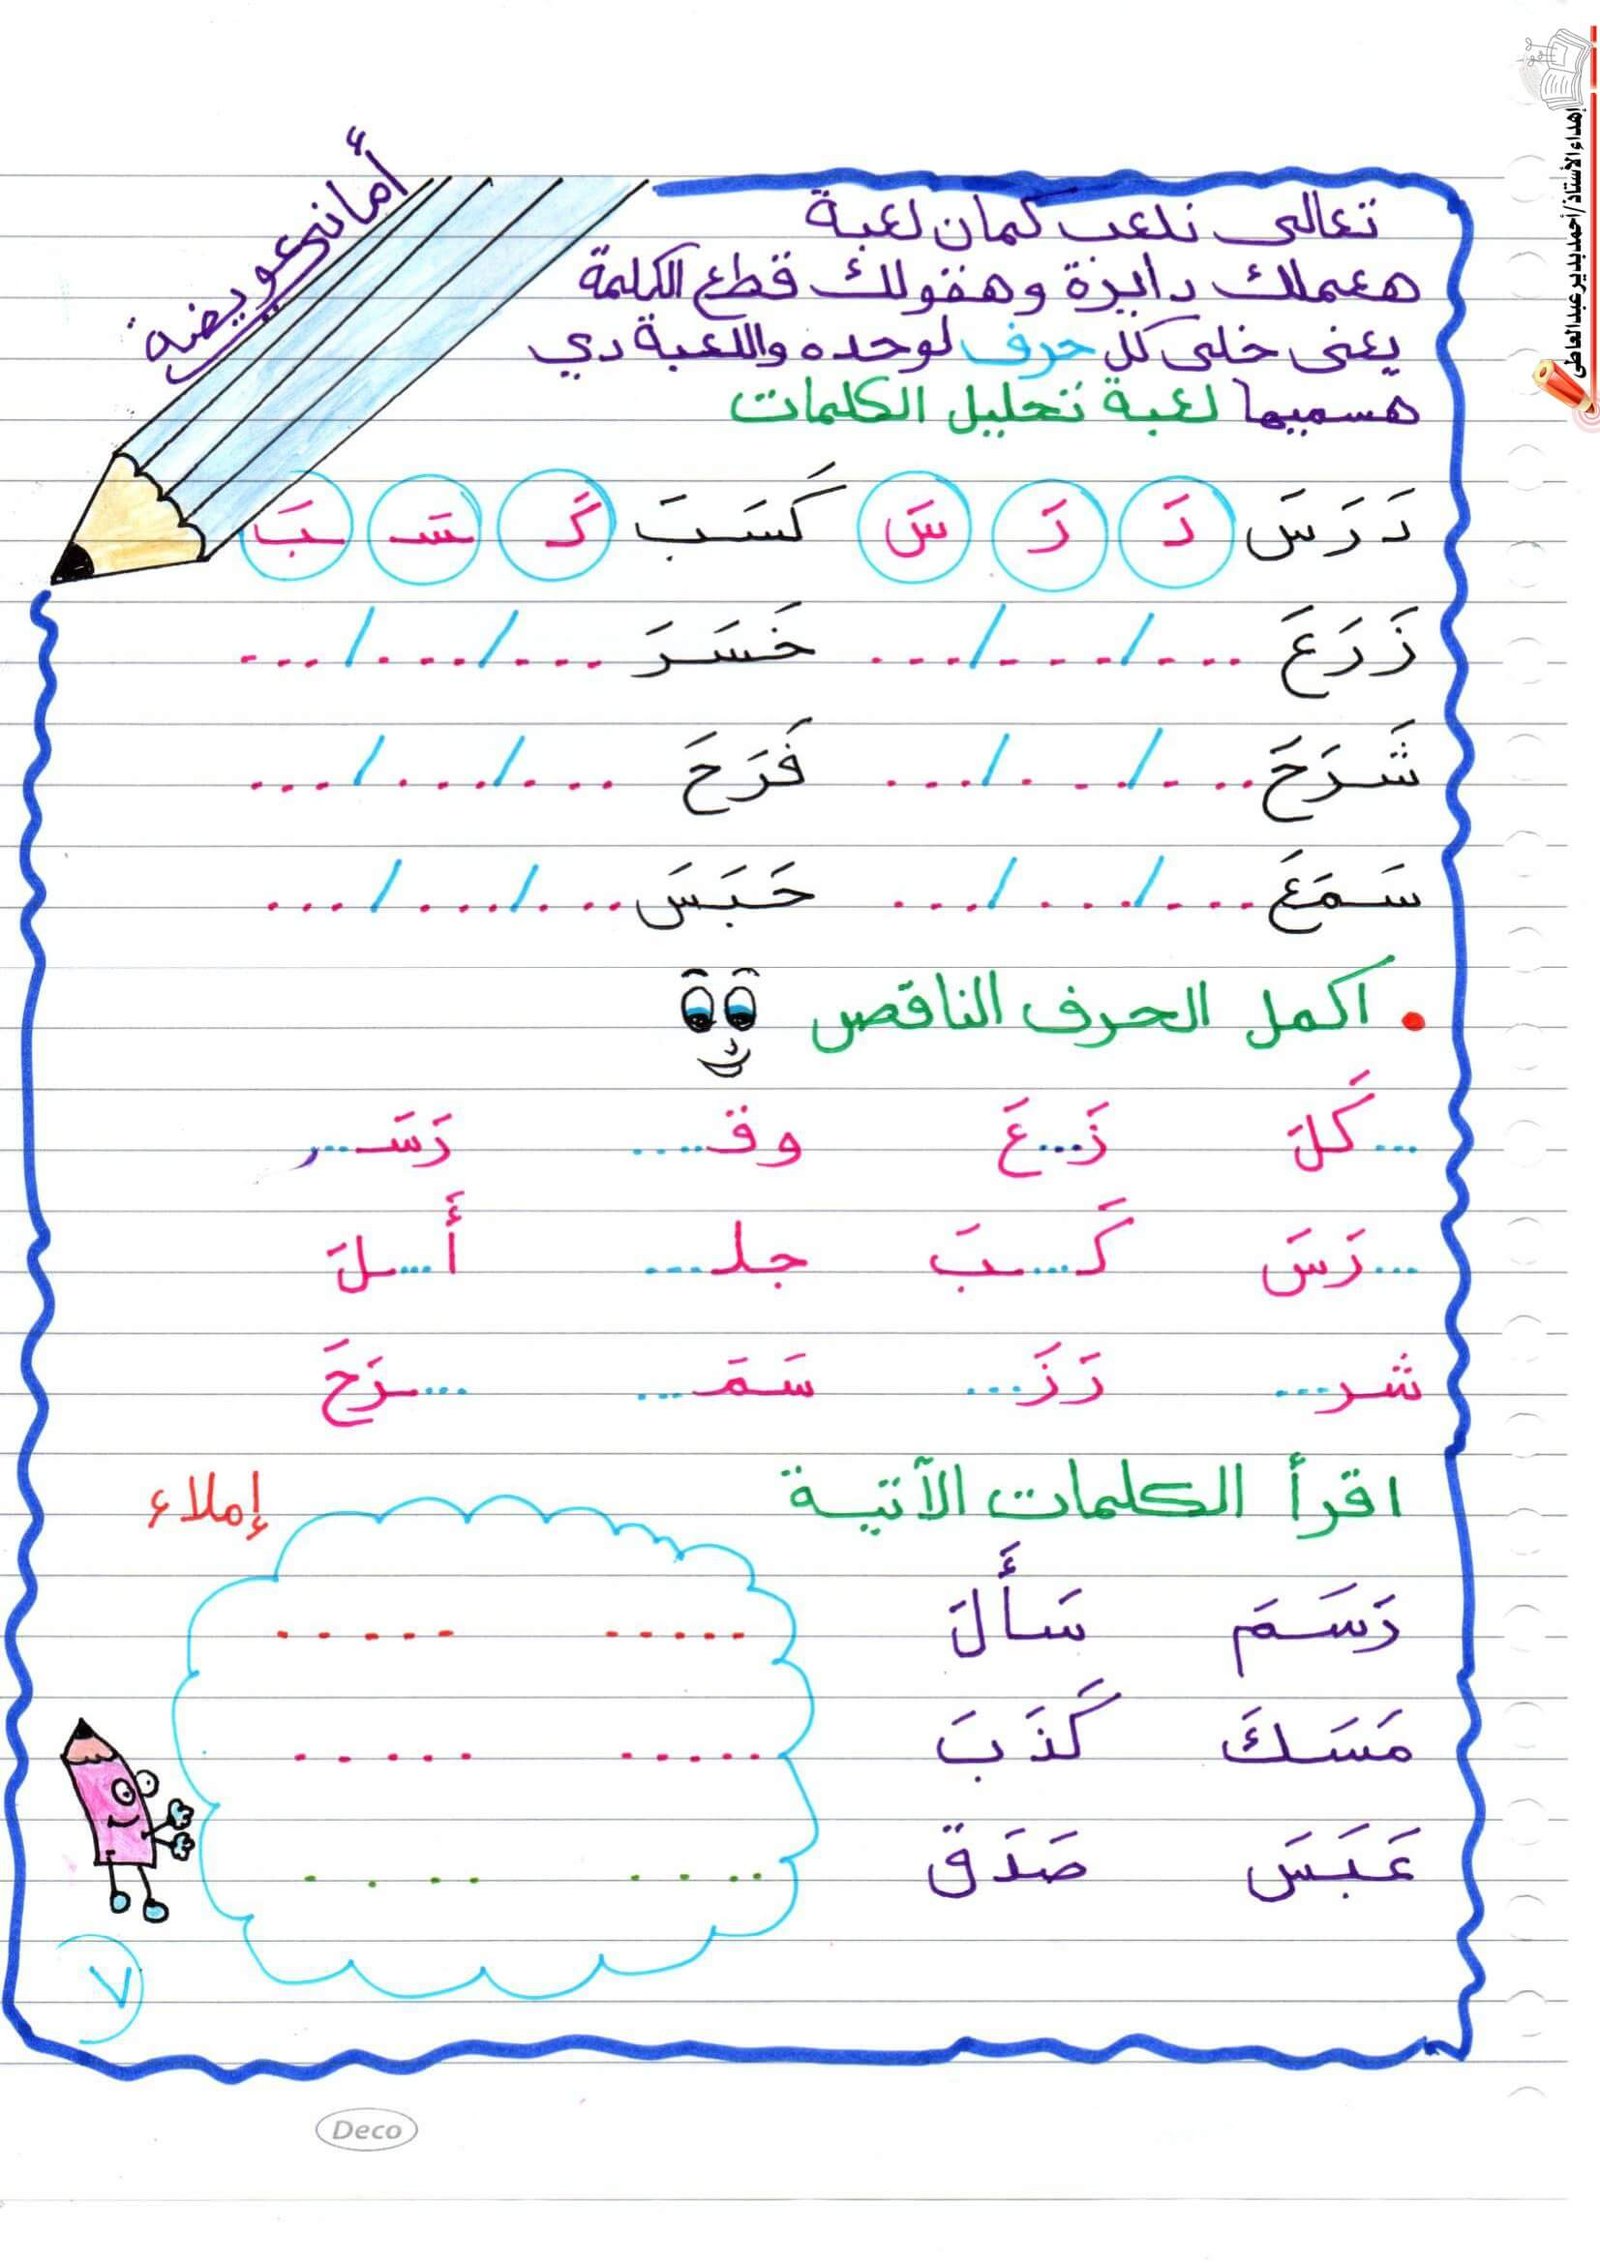 إهداء الاستاذ/أحمد بدير عبد العاطى
أمانى عويضة
تعالى نلعب كمان لعبة
هعملك دايرة وهقولك قطع الكلمة
يعنى خلى كل حرف لوحده واللعبة دي
هسميها لعبة تحليل الكلمات
دَرَسَ دَ رَ سَ كَسَبَ كَ سَ بَ
زَرَعَ .../.../... خَسَرَ .../.../...
شَرَحَ .../.../... فَرَحَ .../.../...
سَمَعَ .../.../... حَبَسَ .../.../...
• اكمل الحرف الناقص
...كَلَ زَ...عَ وقـ.... رَسَـ...
...رَسَ كَـ...ـبَ جلـ... أَ...ـلَ
شر... رَزَ... سَمَـ... ...ـرَحَ
اقرأ الكلمات الآتية
إملاء
رَسَمَ سَأَلَ ..... .....
مَسَكَ كَذَبَ ..... .....
عَبَسَ صَدَق .... ....
٧
Deco